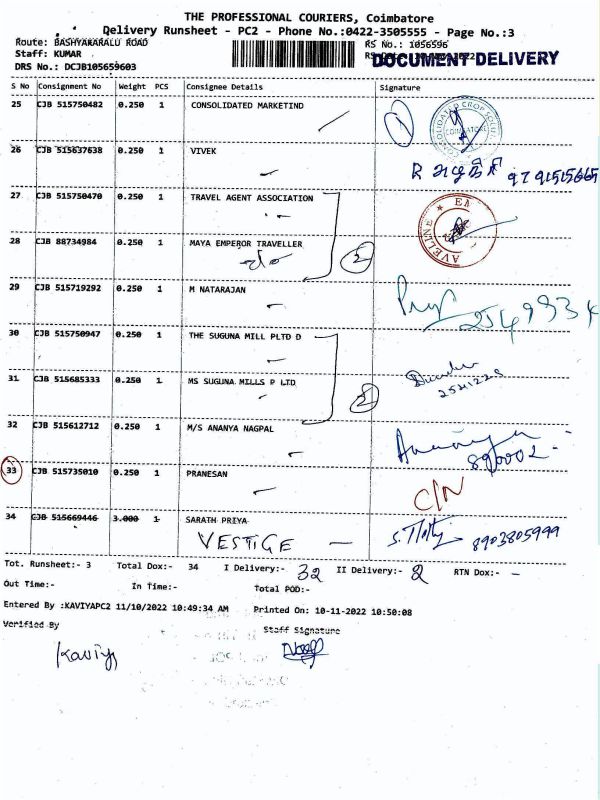 THE PROFESSIONAL COURIERS, Coimbatore
Delivery Runsheet - PC2 - Phone No.:0422-3505555 - Page No.:3
Route: BASHYAKARALU ROAD RS No.: 1056596
Staff: KUMAR DOCUMENT DELIVERY
DRS No.: DCJB105659603
S No Consignment No Weight PCS Consignee Details Signature
25 CJB 515750482 0.250 1 CONSOLIDATED MARKETIND 1
COIMBATORE
26 CJB 515637638 0.250 1 VIVEK
27 CJB 515750470 0.250 1 TRAVEL AGENT ASSOCIATION
AVELINE ★
28 CJB 88734984 0.250 1 MAYA EMPEROR TRAVELLER 2
29 CJB 515719292 0.250 1 M NATARAJAN
30 CJB 515750947 0.250 1 THE SUGUNA MILL PLTD D
31 CJB 515685333 0.250 1 MS SUGUNA MILLS P LTD 2
32 CJB 515612712 0.250 1 M/S ANANYA NAGPAL Ananya
33 CJB 515735010 0.250 1 PRANESAN C/N
34 CJB 515669446 3.000 1 SARATH PRIYA
VESTIGE — 8903805999
Tot. Runsheet:- 3 Total Dox:- 34 I Delivery:- 32 II Delivery:- 2 RTN Dox:- -
Out Time:- In Time:- Total POD:-
Entered By :KAVIYAPC2 11/10/2022 10:49:34 AM Printed On: 10-11-2022 10:50:08
Verified By Staff Signature
Kaviya